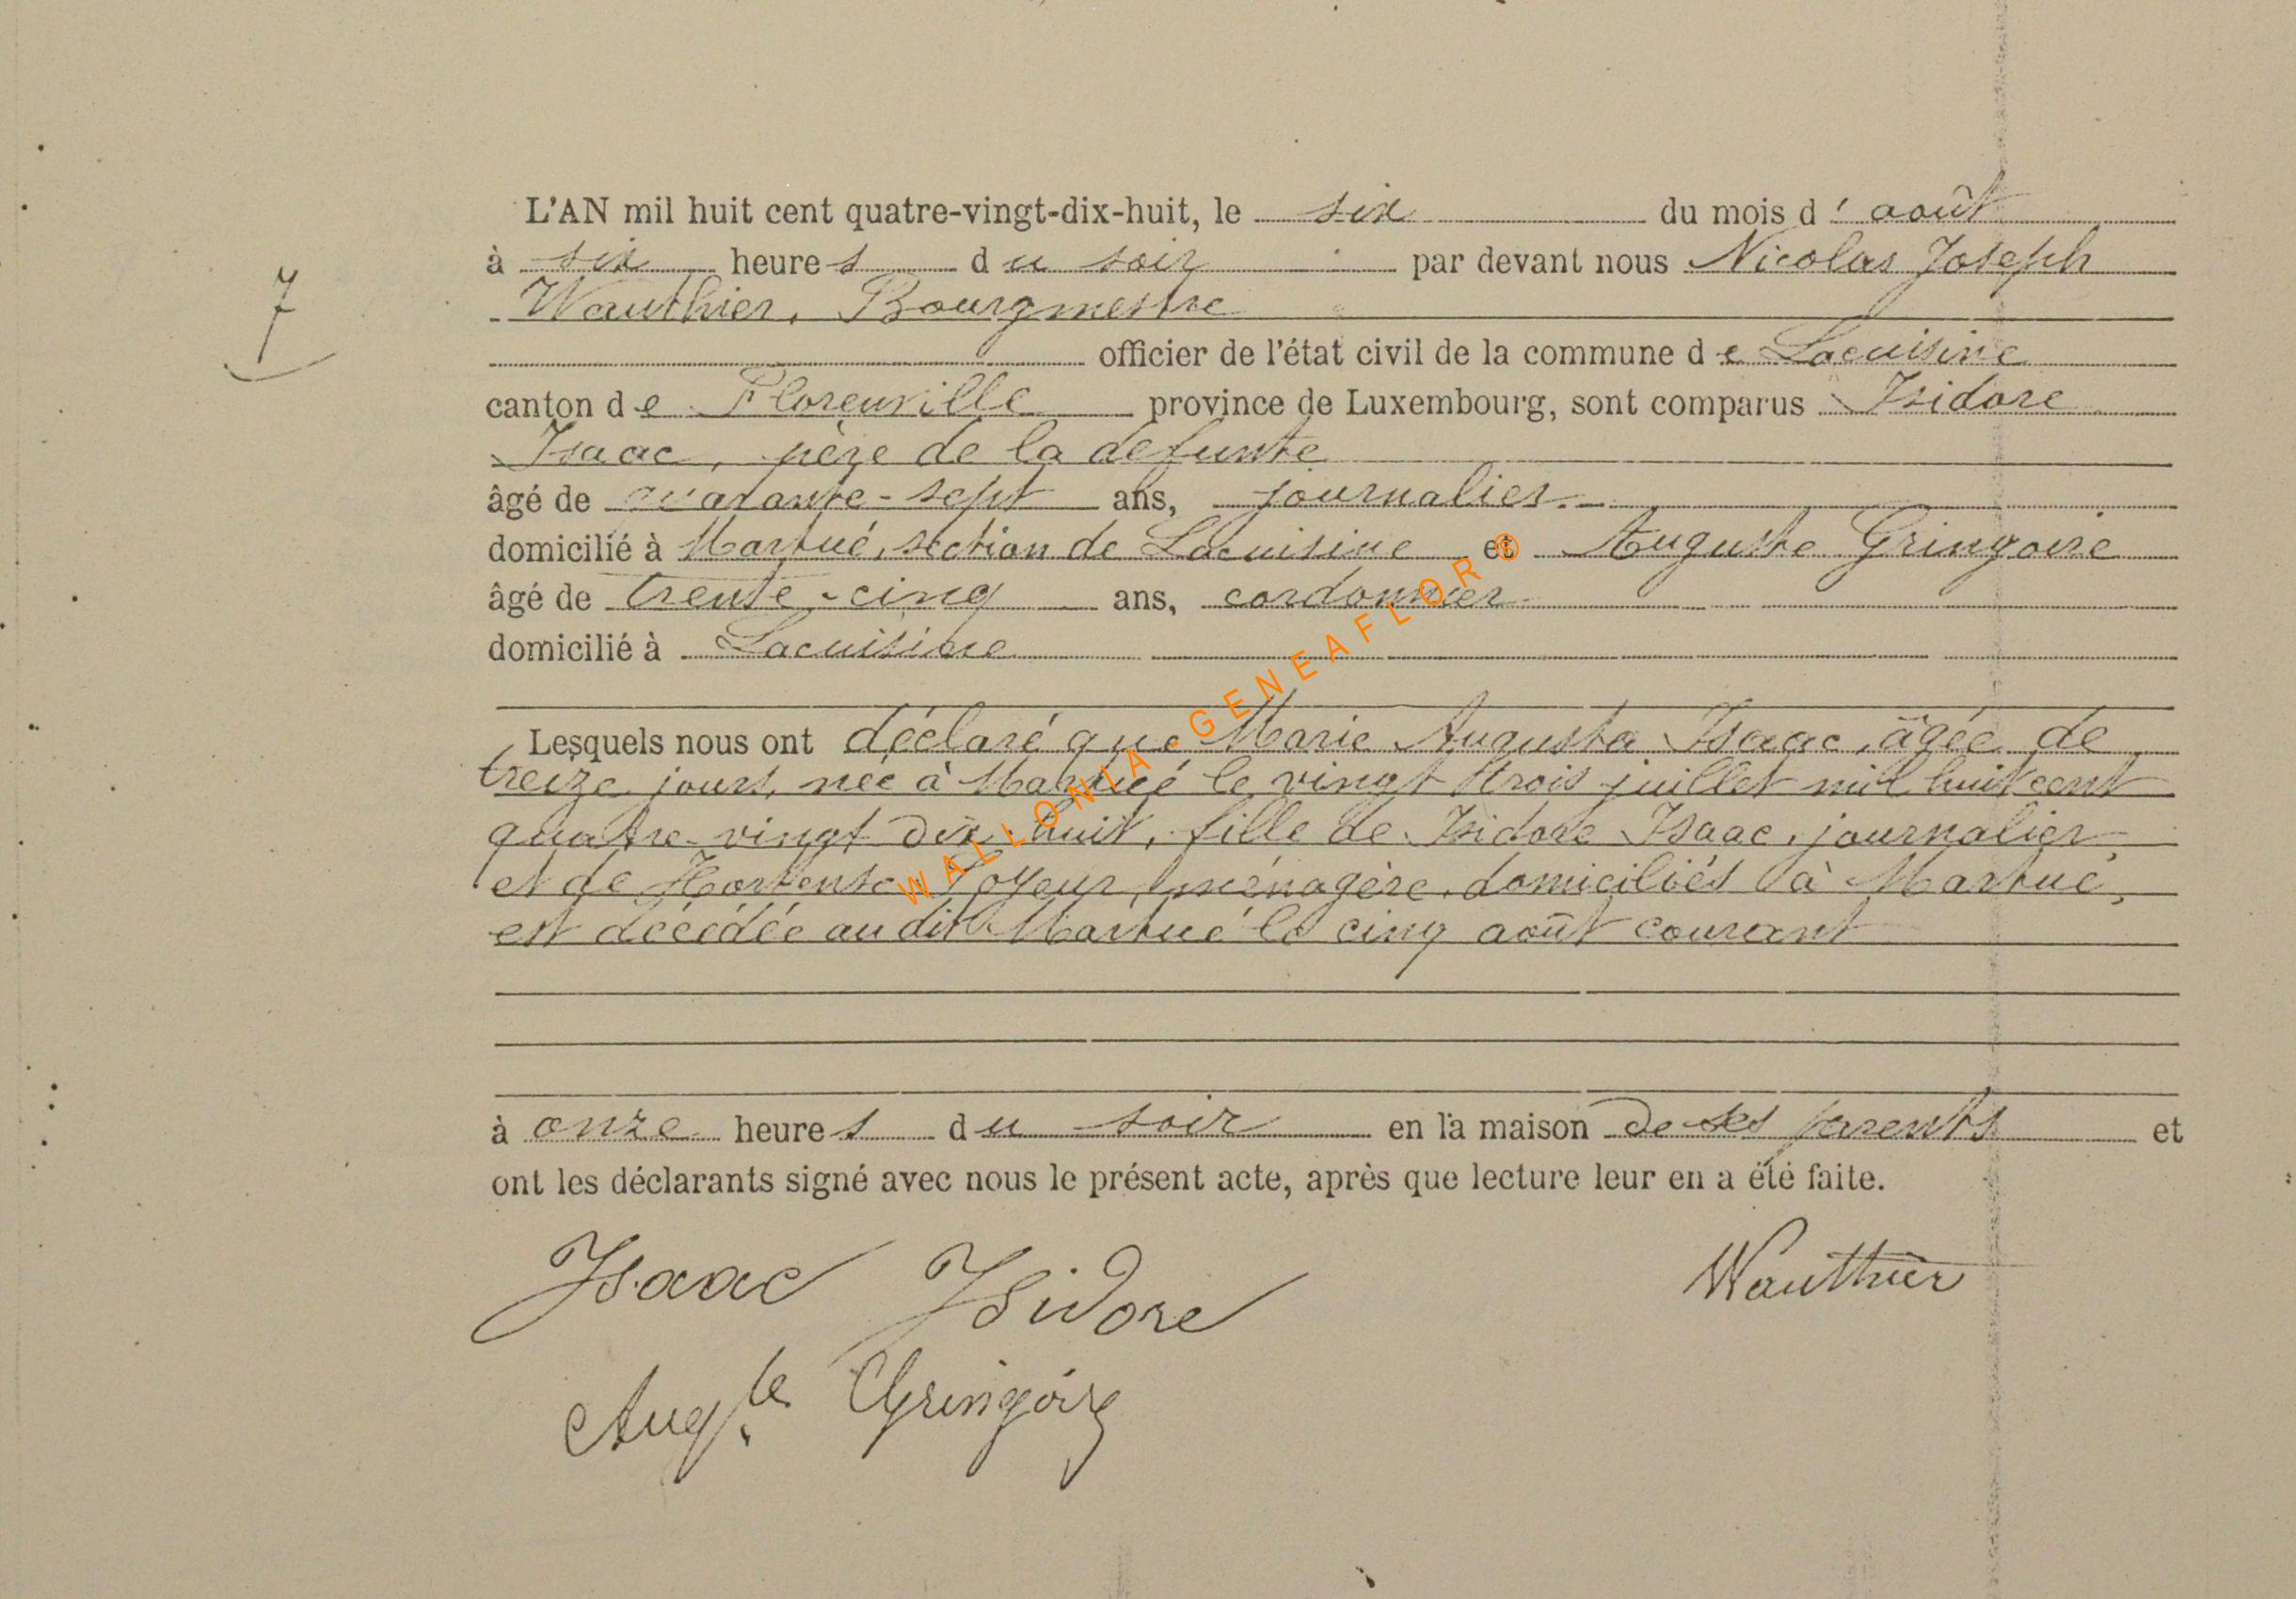 L'AN mil huit cent quatre-vingt-dix-huit, le six du mois d' août
à six heures du soir par devant nous Nicolas Joseph
7
Wauthier, Bourgmestre
officier de l'état civil de la commune de Lacuisine
canton de Florenville province de Luxembourg, sont comparus Isidore
Isaac, père de la défunte
âgé de quarante-sept ans, journalier
domicilié à Martué, section de Lacuisine et Auguste Gringoire
âgé de trente-cinq ans, cordonnier
domicilié à Lacuisine
Lesquels nous ont déclaré que Marie Augusta Isaac, âgée de
treize jours, née à Martué le vingt trois juillet mil huit cent
quatre-vingt dix-huit, fille de Isidore Isaac, journalier
et de Hortense ménagère, domiciliés à Martué,
est décédée au dit Martué le cinq août courant
à onze heures du soir en la maison de ses parents et
ont les déclarants signé avec nous le présent acte, après que lecture leur en a été faite.
Isaac Isidore Wauthier
Aug.te Gringoire
WALLONIA GENEAFLOR®